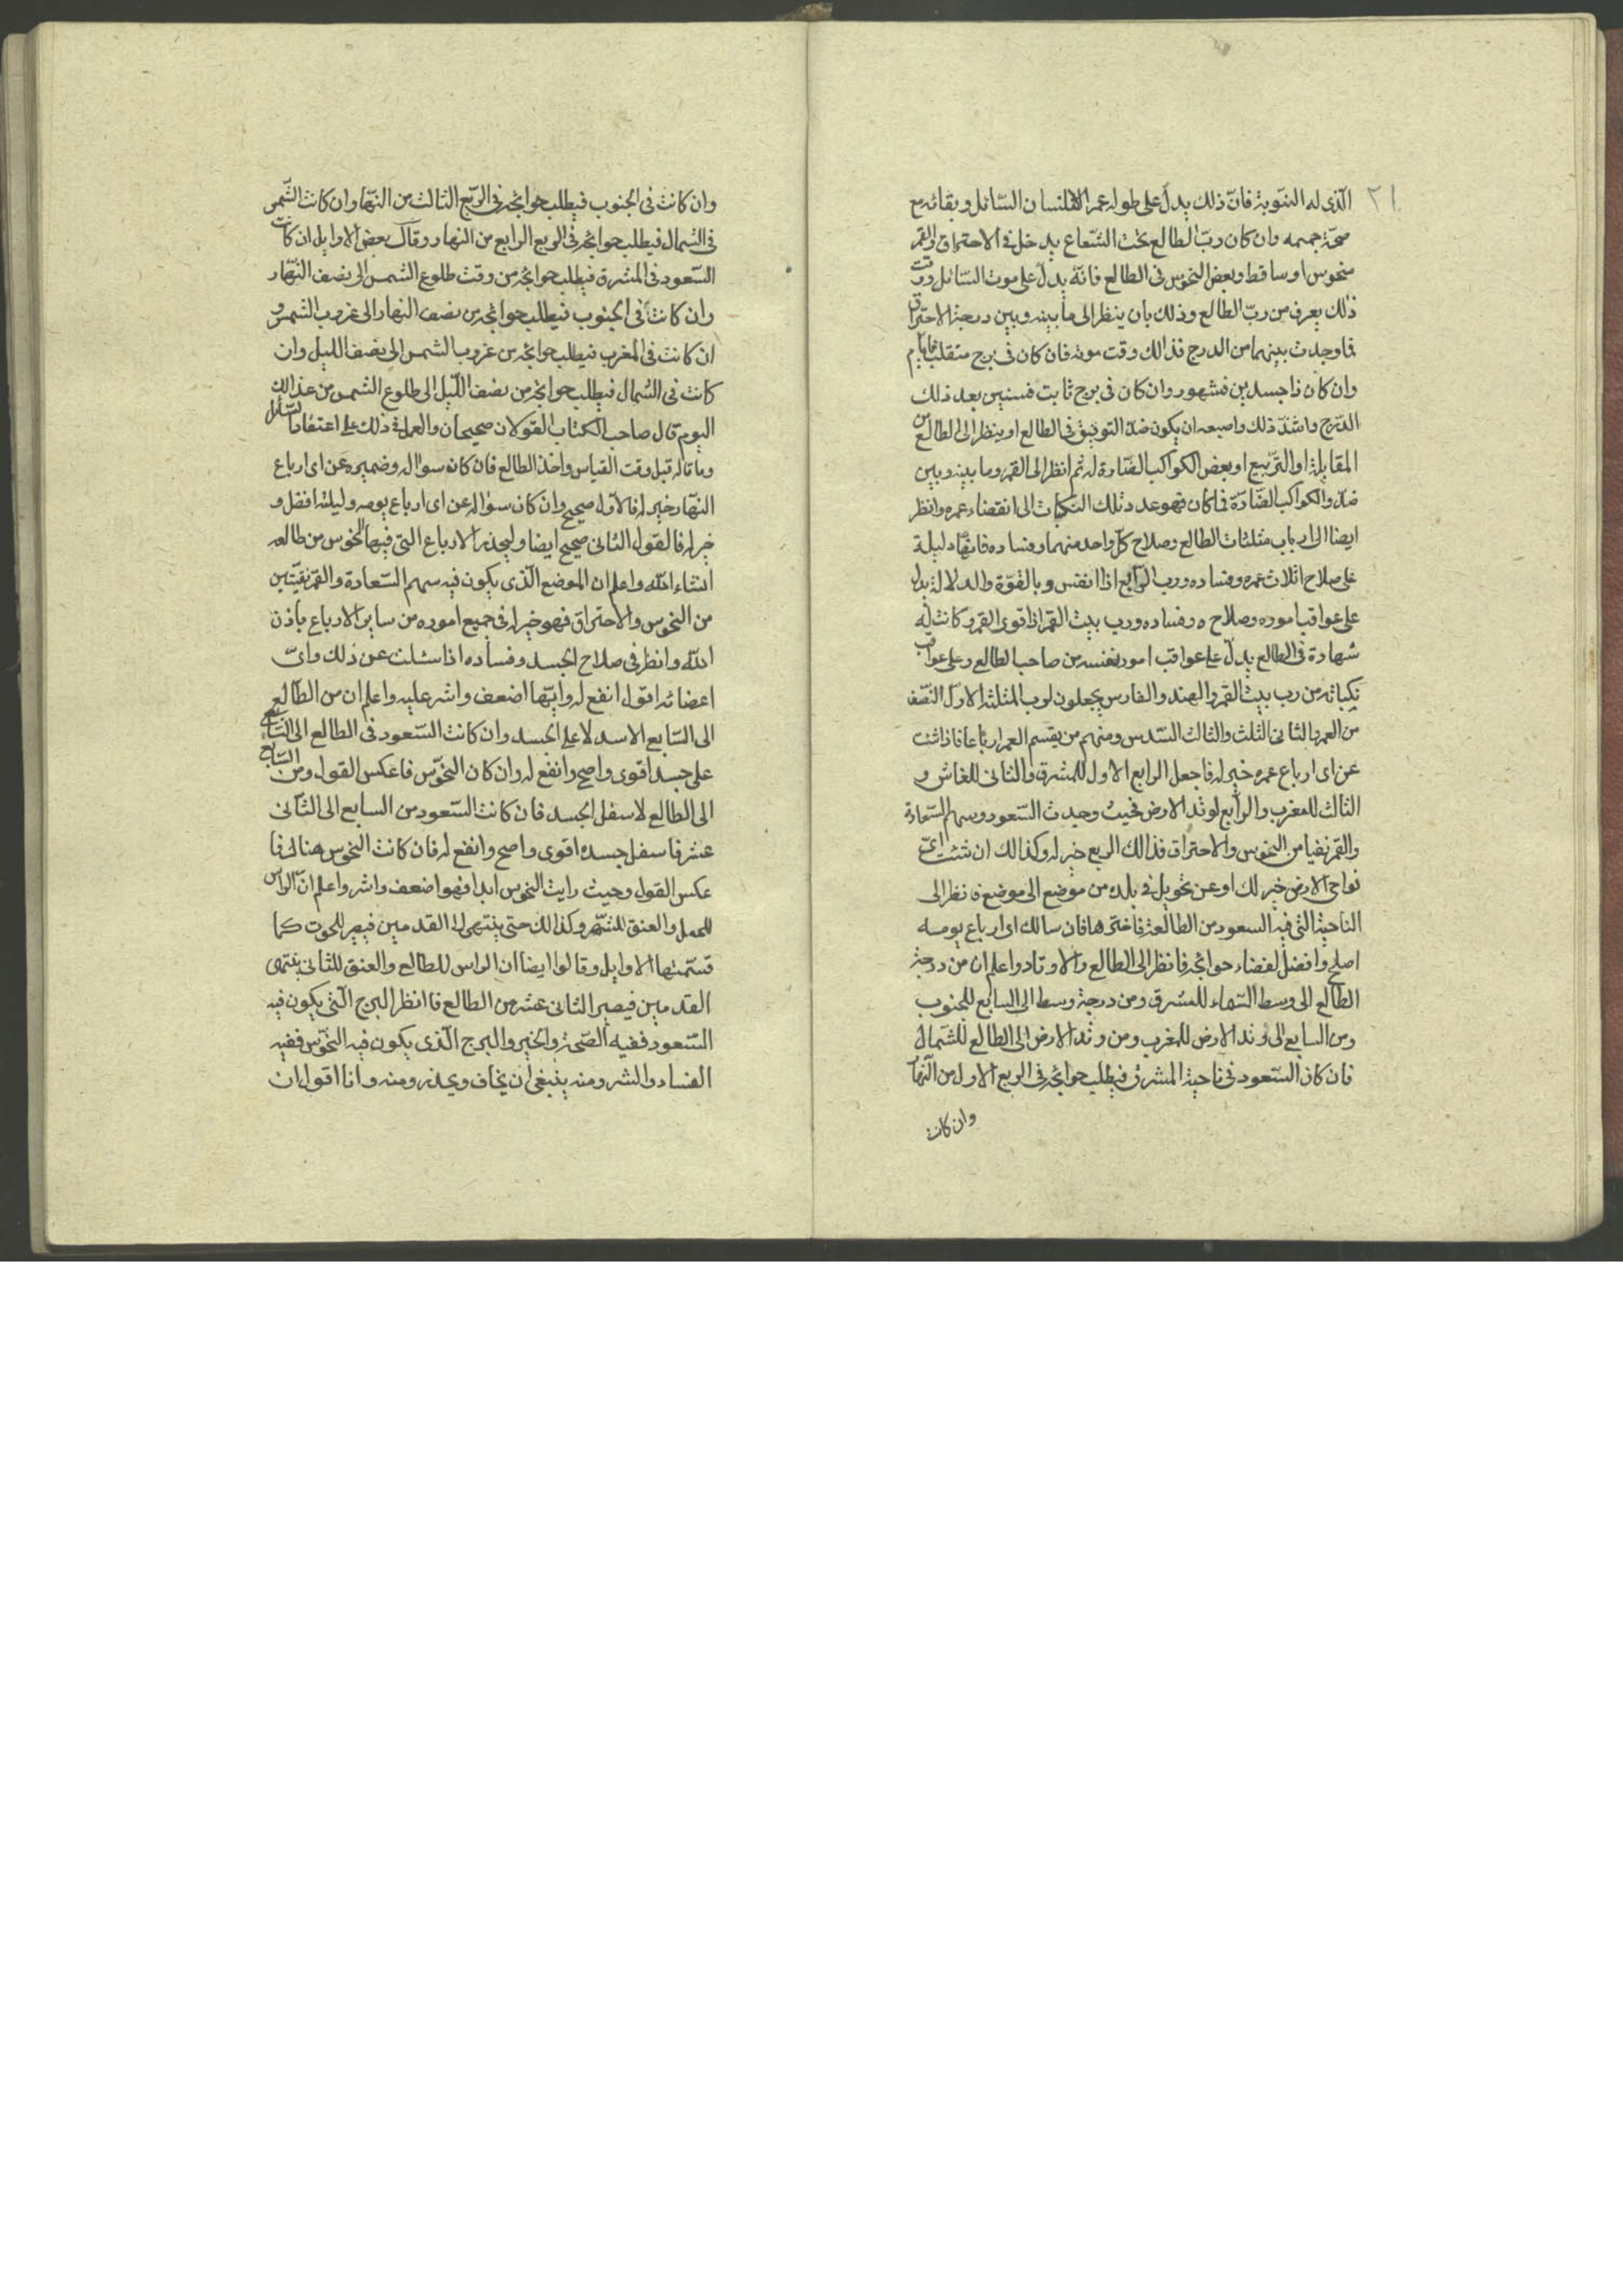 ٢١
الّذى له النّوبة فانّ ذلك يدلّ على طوله عمر الانسان السّائل وبقائه مع
صحّة جسمه وان كان ربّ الطالع تحت الشّعاع يدخل فى الاحتراق والقمر
منحوس او ساقط وبعض النحوس فى الطالع فانّه يدلّ على موت السّائل ووقت
ذلك يعرف من ربّ الطالع وذلك بان ينظر الى ما بينه وبين درجة الاحتراق
فما وجدت بينهما من الدرج فذالك وقت موته فان كان فى برج منقلب فايام
وان كان ذا جسدين فشهور وان كان فى برج ثابت فسنين بعد ذلك
الدّرج واشدّ ذلك واصعبه ان يكون ضدّ التوفيق فى الطالع او ينظر الى الطالع من
المقابلة او التّربيع او بعض الكواكب الضّارة له ثم انظر الى القمر وما بينه وبين
ضدّه والكواكب الضّادّة فما كان فهو عدد تلك النكبات الى انقضاء عمره وانظر
ايضا الى ارباب مثلثات الطالع وصلاح كلّ واحد منهما وفساده فانهّا دليلة
على صلاح اثلاث عمره وفساده ورب الرّابع اذا انفس وبالقوّة والدلالة يدل
على عواقب اموره وصلاح ه وفساده ورب بيت القمر اذا قوى القمر وكانت له
شهادة فى الطالع يدلّ على عواقب امور نفسه من صاحب الطالع وعلى عواقب
نكباته من رب بيت القمر والهند والفارس يجعلون لرب المثلثة الاوّل النّصف
من العمر والثانى الثلث والثالث السّدس ومنهم من يقسم العمر ارباعا فاذا شئت
عن اى ارباع عمره خير له فاجعل الرابع الاول للمشرق والثانى للعاشر و
الثالث للمغرب والرابع لوتد الارض فحيث وجدت السّعود وسهم السّعادة
والقمر نقيا من النحوس والاحتراق فذالك الربع خير له وكذالك ان شئت اىّ
نواحى الارض خير لك او عن تحويل فى بلده من موضع الى موضع فانظر الى
الناحية التى فيه السعود من الطالعة فاخترها فان سالك اى ارباع يومه
اصلح وافضل لقضاء حوائجه فانظر الى الطالع والاوتاد واعلم ان من درجة
الطالع الى وسط السّماء للمشرق ومن درجة وسط الى السابع للجنوب
ومن السابع الى وتد الارض للمغرب ومن وتد الارض الى الطالع للشّمال
فان كان السّعود فى ناحية المشرق فيطلب حوائجه فى الربع الاول من النّهار
وان كانت
وان كانت فى الجنوب فيطلب حوائجه فى الرّبع الثالث من النّهار وان كانت الشّمس
فى الشمال فيطلب حوائجه فى الربع الرابع من النهار وقال بعض الاوايل ان كانت
السّعود فى المشرة فيطلب حوائجه من وقت طلوع الشمس الى نصف النّهار
وان كانت فى الجنوب فيطلب حوائجه من نصف النهار الى غروب الشمس و
ان كانت فى المغرب فيطلب حوائجه من غروب الشمس الى نصف الليل وان
كانت فى الشمال فيطلب حوائجه من نصف اللّيل الى طلوع الشمس من غد ذالك
اليوم قال صاحب الكتاب القولان صحيحان والعملة ذلك على اعتقاد السّائل
وما قاله قبل وقت القياس واخذ الطالع فان كان سواله وضميره عن اى ارباع
النّهار خير له فالاوّل صحيح وان كان سؤاله عن اى ارباع يومه وليلته افضل و
خير له فالقول الثانى صحيح ايضا وليحذر الارباع التى فيها النحوس من طالعه
انشاء الله واعلم ان الموضع الّذى يكون فيه سهم السّعادة والقمر نقيّتين
من النحوس والاحتراق فهو خير له فى جميع اموره من ساير الارباع باذن
الله وانظر فى صلاح الجسد وفساده اذا سئلت عن ذلك واىّ
اعضائه اقول انفع له وايّها اضعف واشر عليه واعلم ان من الطالع
الى السّابع الاسد لاعلى الجسد وان كانت السّعود فى الطالع الى السّابع
على جسد اقوى واصح وانفع له وان كان النحوّس فاعكس القول ومن السّابع
الى الطالع لاسفل الجسد فان كانت السّعود من السابع الى الثانى
عشر فاسفل جسده اقوى واصح وانفع له فان كانت النحوس هناك فا
عكس القول وحيث رايت النحوس ابدا فهو اضعف واشر واعلم انّ الراس
للحمل والعنق للثّور وكذالك حتى ينتهى الى القدمين فيصير للحوت كما
قسّمتها الاوايل وقالوا ايضا ان الراس للطالع والعنق للثانى ينتهى
القدمين فيصير الثانى عشر من الطالع فاانظر البرج الّتى يكون فيه
السّعود ففيه الصّحة والخير والبرج الّذى يكون فيه النحوّس ففيه
الفساد والشر ومنه ينبغى ان يخاف ويحذر ومنه وانا اقول ان